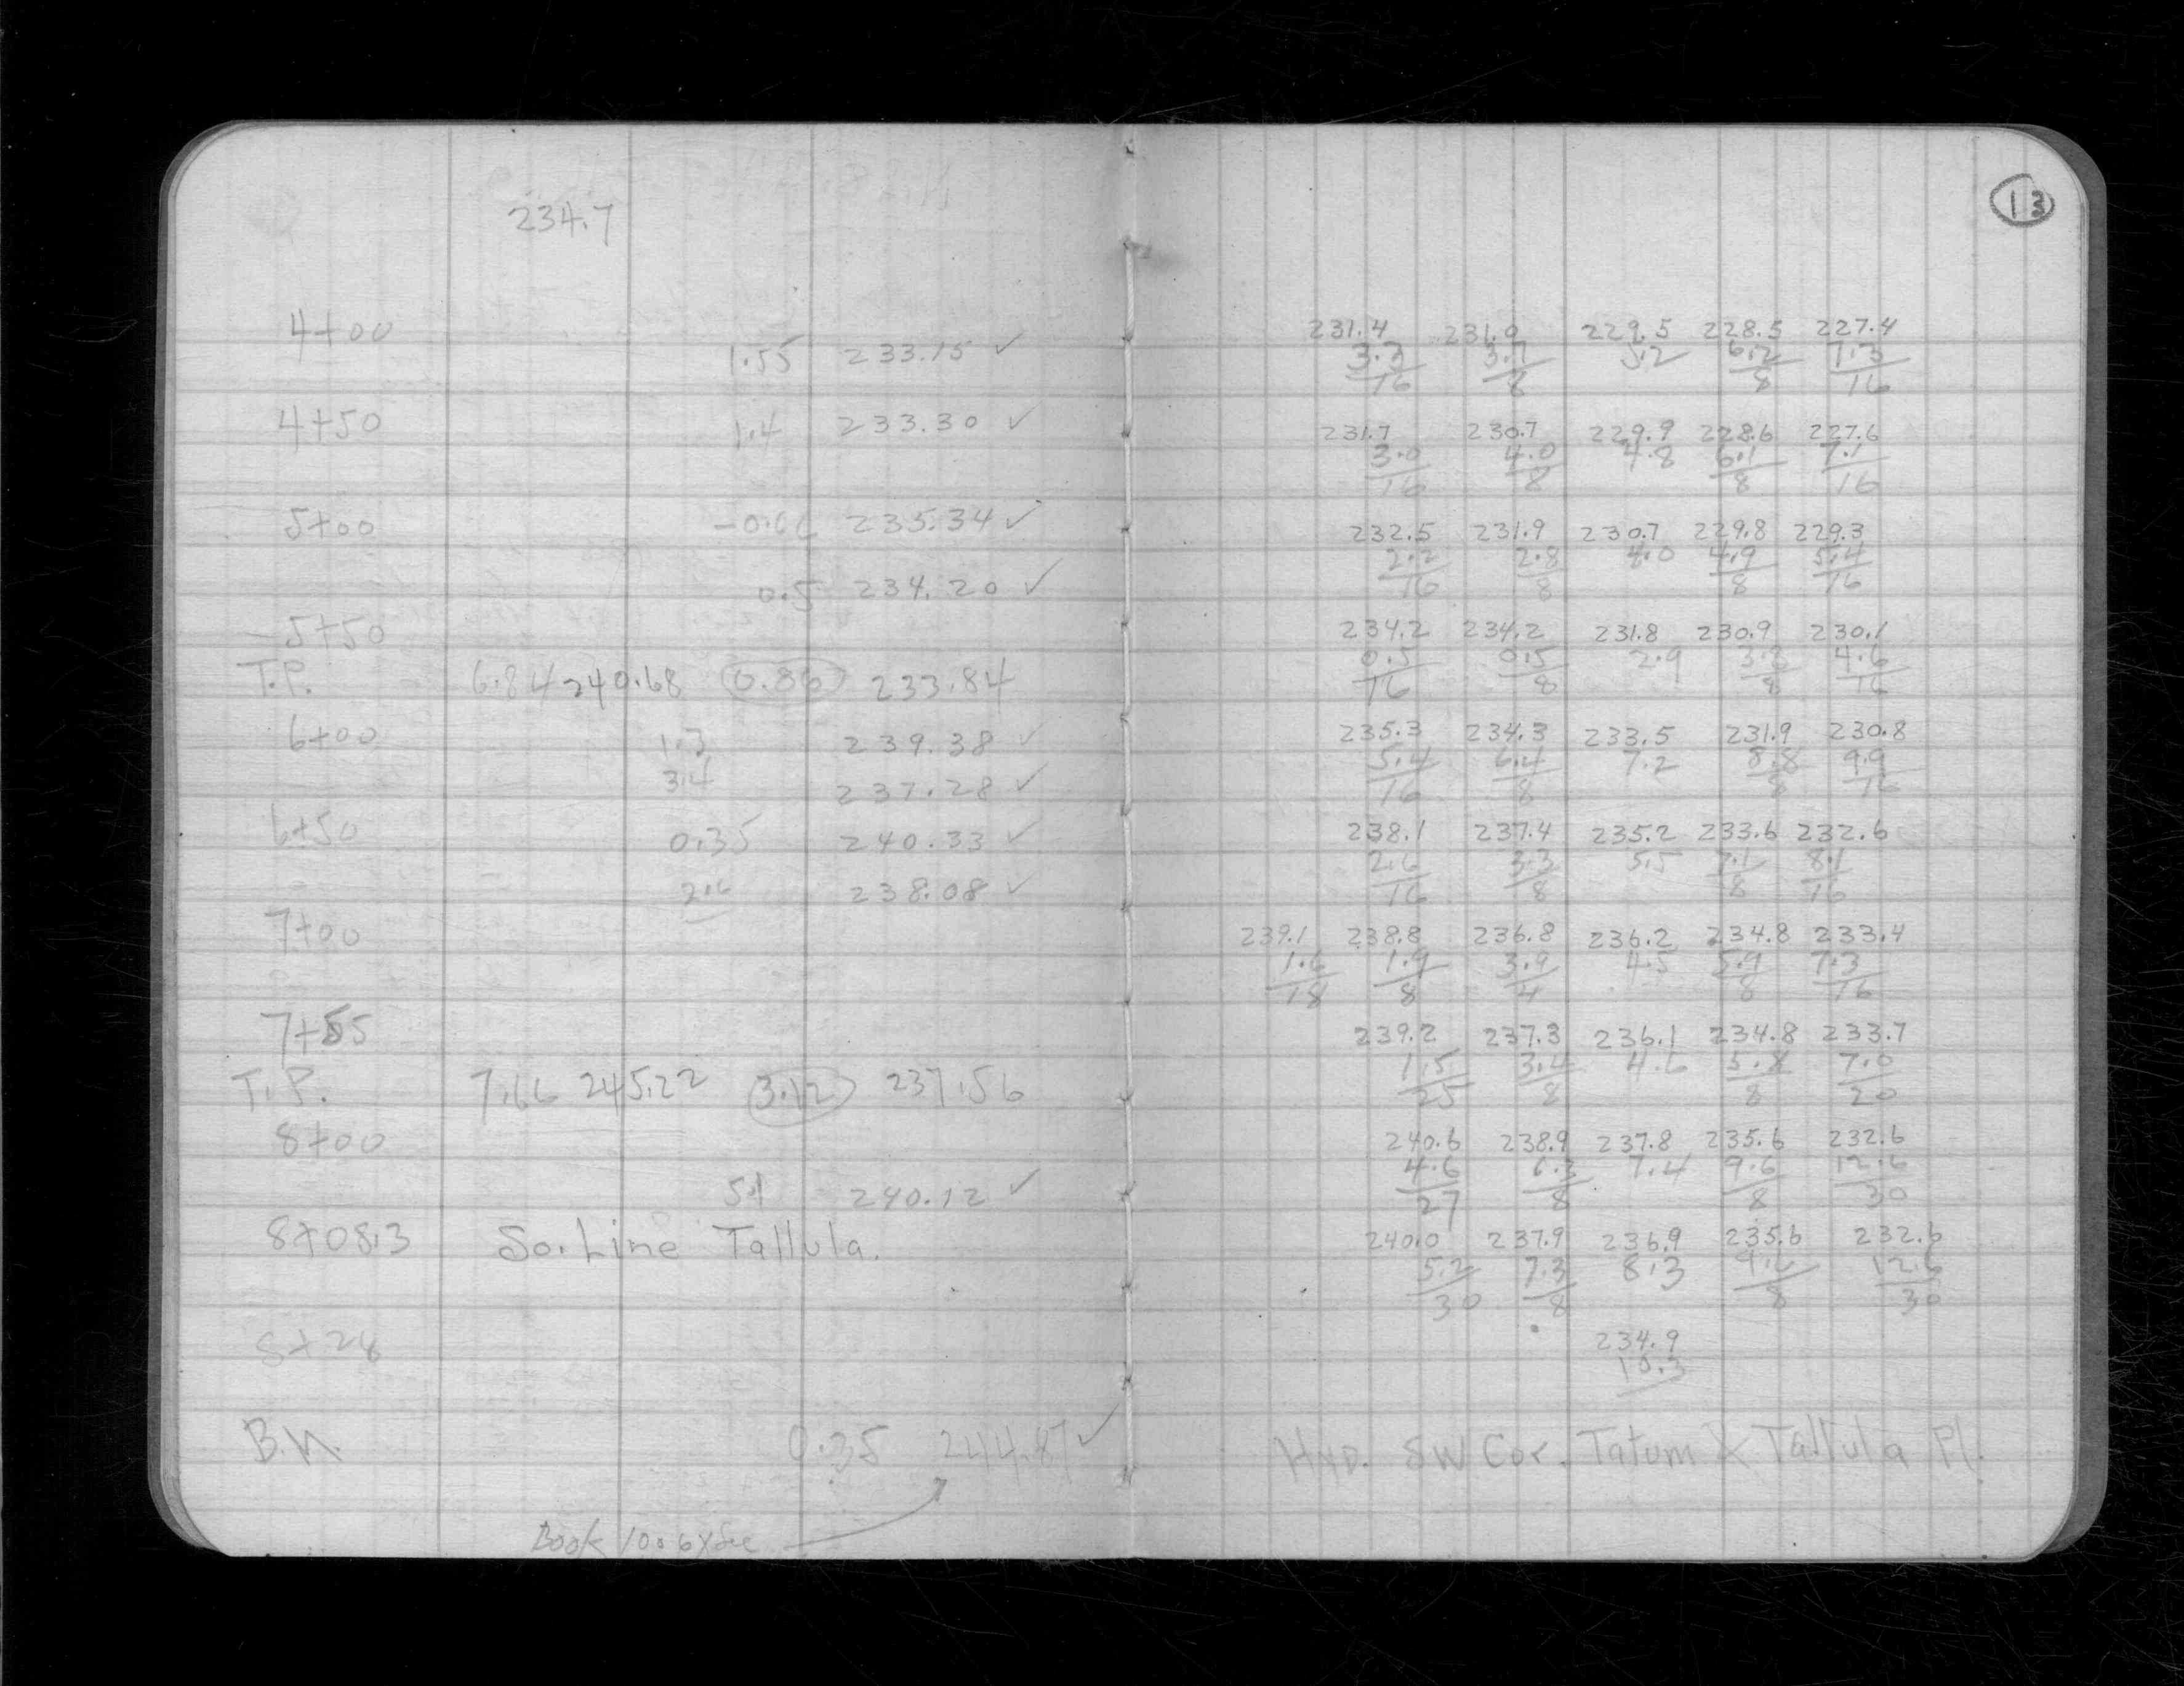 13
234.7
4+00 231.4 231.0 229.5 228.5 227.4
1.55 233.15 ✓ 3.3/16 3.7/8 5.2 6.2/8 7.3/16
4+50 1.4 233.30 ✓ 231.7 230.7 229.9 228.6 227.6
3.0/16 4.0/8 4.8 6.1/8 7.1/16
5+00 235.34 ✓ 232.5 231.9 230.7 229.8 229.3
2.2/16 2.8/8 4.0 4.9/8 5.4/16
0.5 234.20 ✓
5+50 234.2 234.2 231.8 230.9 230.1
0.5/16 0.5/8 2.9 3.8/8 4.6/16
T.P. 6.84 240.68 0.86 233.84
6+00 1.3 239.38 ✓ 235.3 234.3 233.5 231.9 230.8
3.4 237.28 ✓ 5.4/16 6.4/8 7.2 8.8/8 9.9/16
6+50 0.35 240.33 ✓ 238.1 237.4 235.2 233.6 232.6
2.6 238.08 ✓ 2.6/16 3.3/8 5.5 7.1/8 8.1/16
7+00 239.1 238.8 236.8 236.2 234.8 233.4
1.6/18 1.9/8 3.9/4 4.5 5.9/8 7.3/16
7+55 239.2 237.3 236.1 234.8 233.7
1.5/25 3.4/8 4.6 /8 7.0/20
T.P. 7.66 245.22 3.12 237.56
8+00 240.6 238.9 237.8 235.6 232.6
5.1 240.12 ✓ 4.6/27 6.3/8 7.4 9.6/8 12.6/30
8+08.3 So. Line Tallula. 240.0 237.9 236.9 235.6 232.6
5.2/30 7.3/8 8.3 9.6/8 12.6/30
8+28 234.9
10.3
B.M. 0.35 244.87 ✓ Hyd. SW Cor. Tatum & Tallula Pl.
Book 10.6